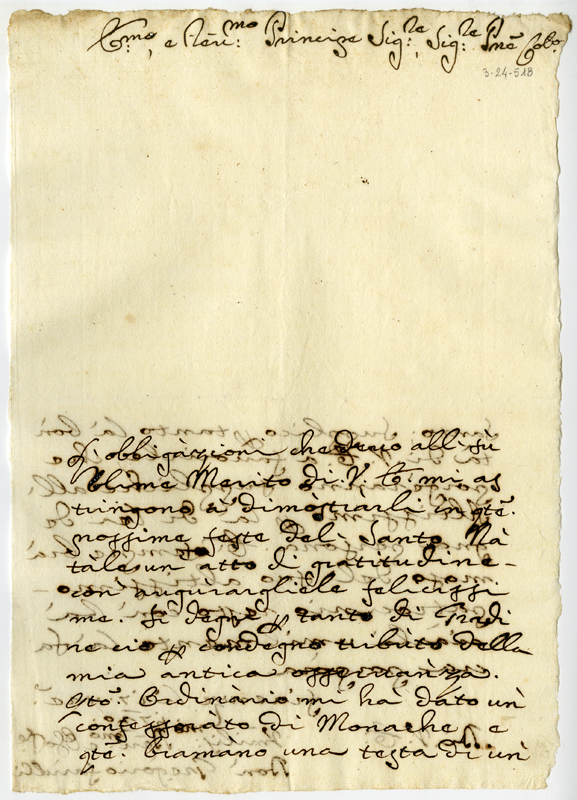 E.mo, e Rev.mo Principe Sig.re, Sig.re Prne Col.o
3-24-518
L'obbligazioni che devo all su
blime Merito di V. E. mi as
tringono a dimostrarli in qte.
nossime feste del Santo Na
tale un atto di gratitudine
con augurargliele felicissi
me. Si degni tanto di Gradi
re cio condegno tributo della
mia antica osservanza.
Qto. Ordinario mi ha dato un
confessorato di Monache, e
qte. bramano una testa di un